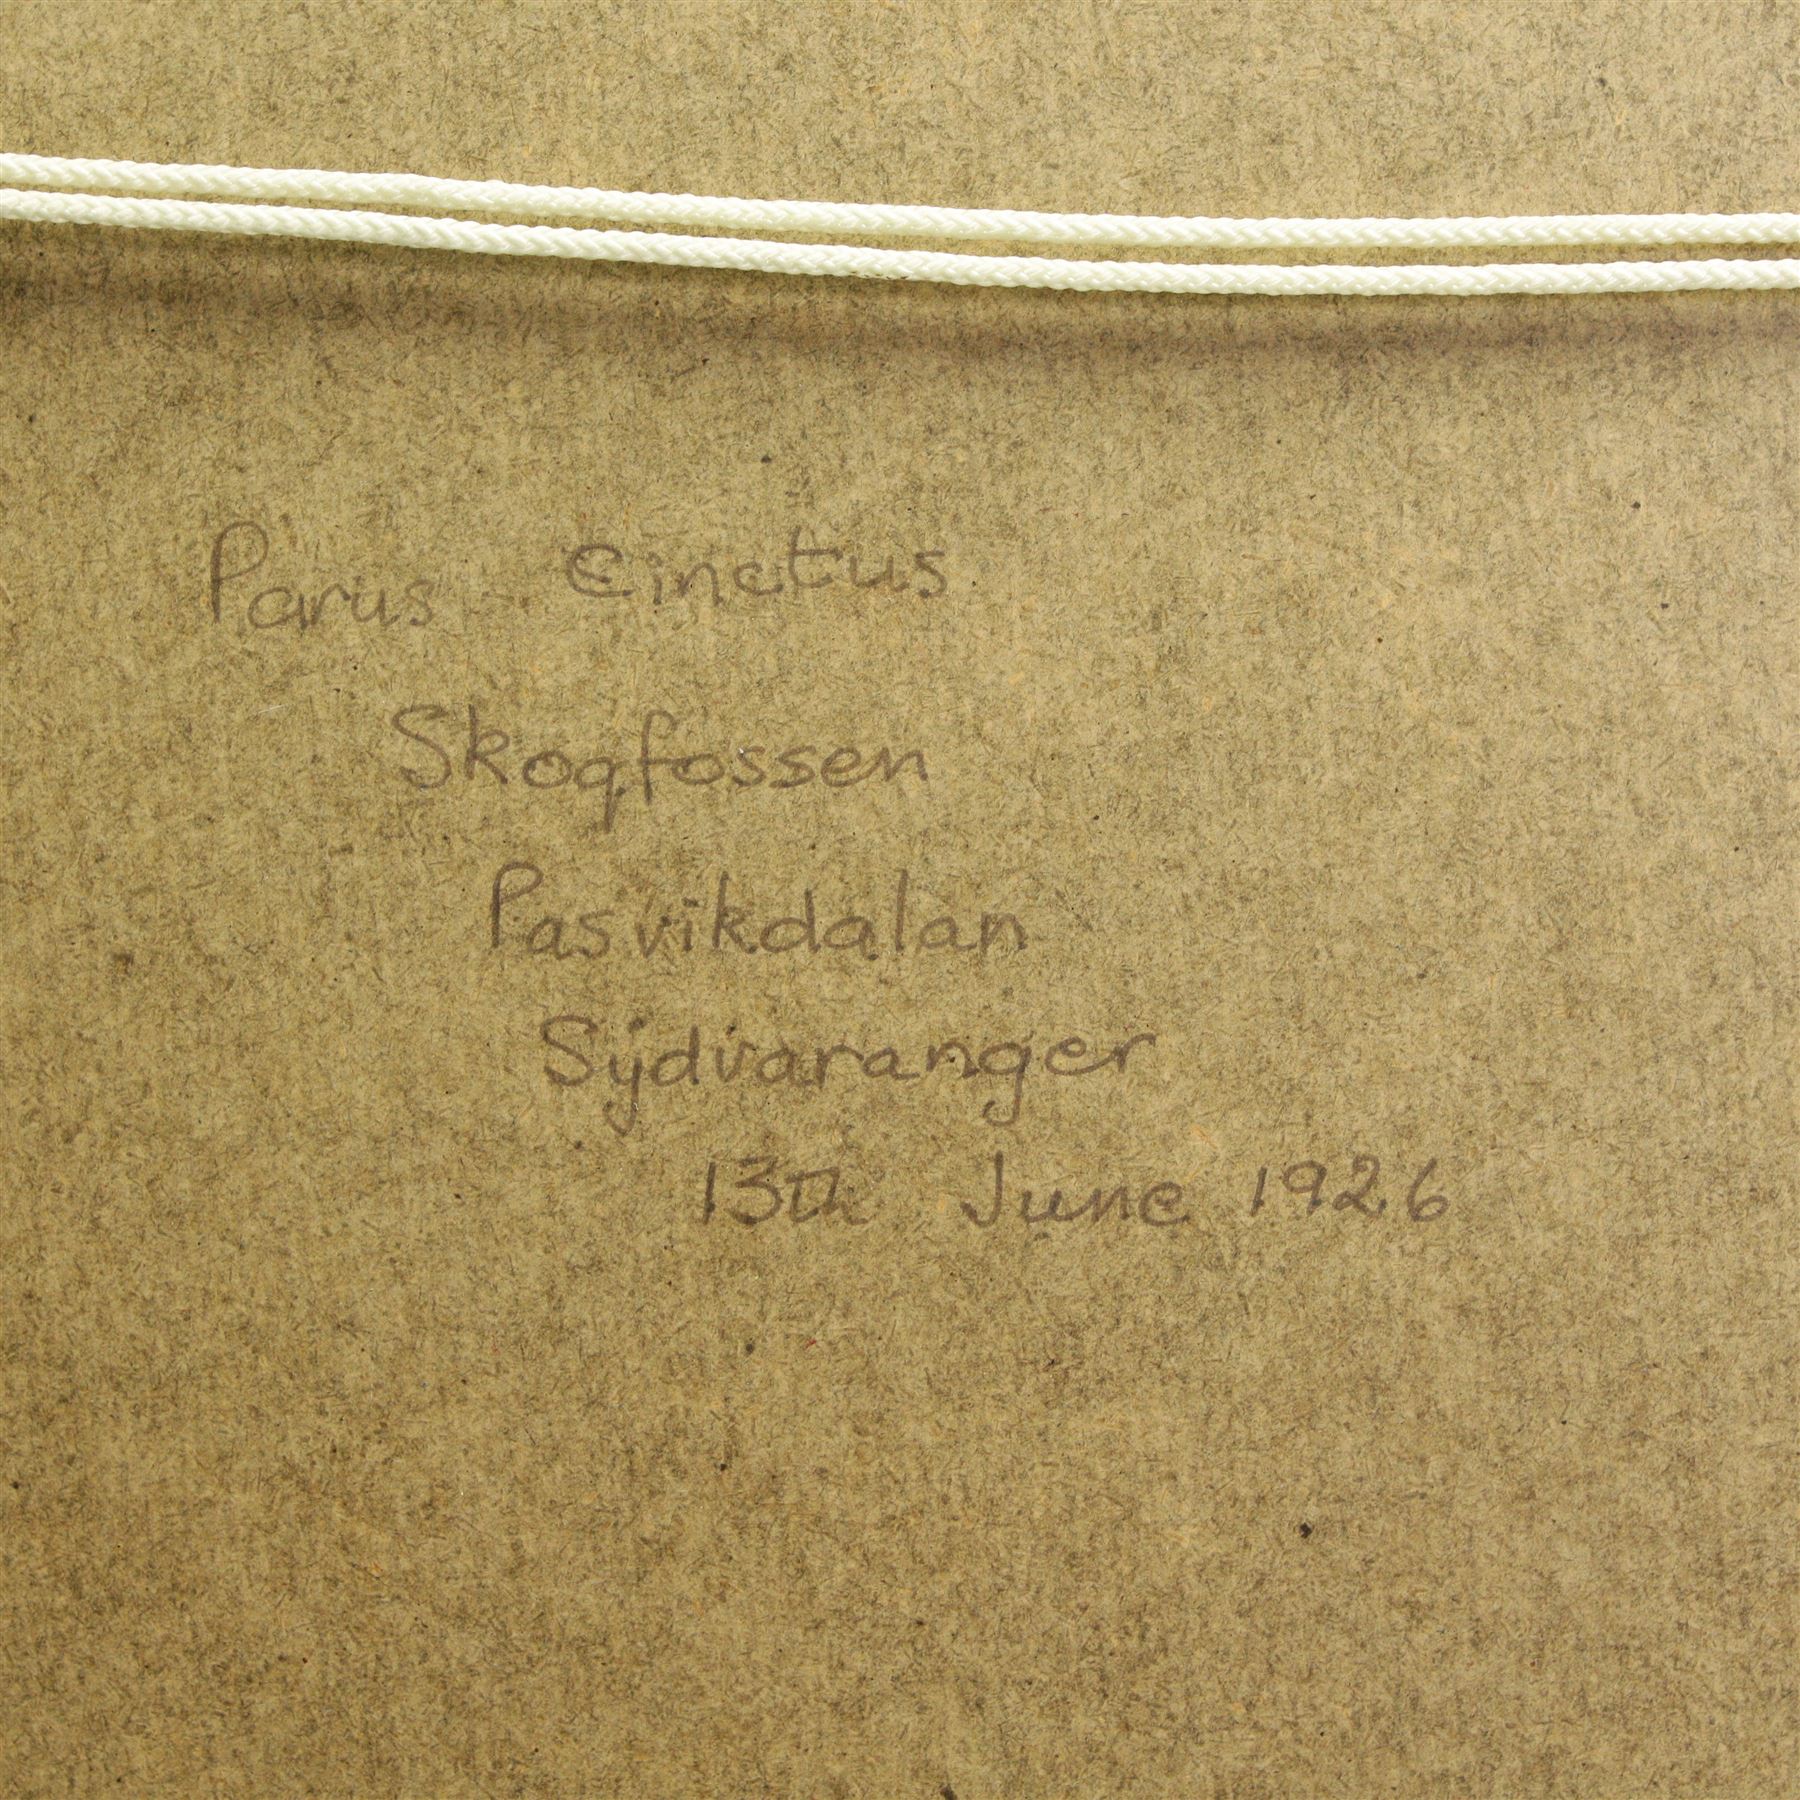 Parus cinctus
Skogfossen
Pasvikdalan
Sydvaranger
13th June 1926